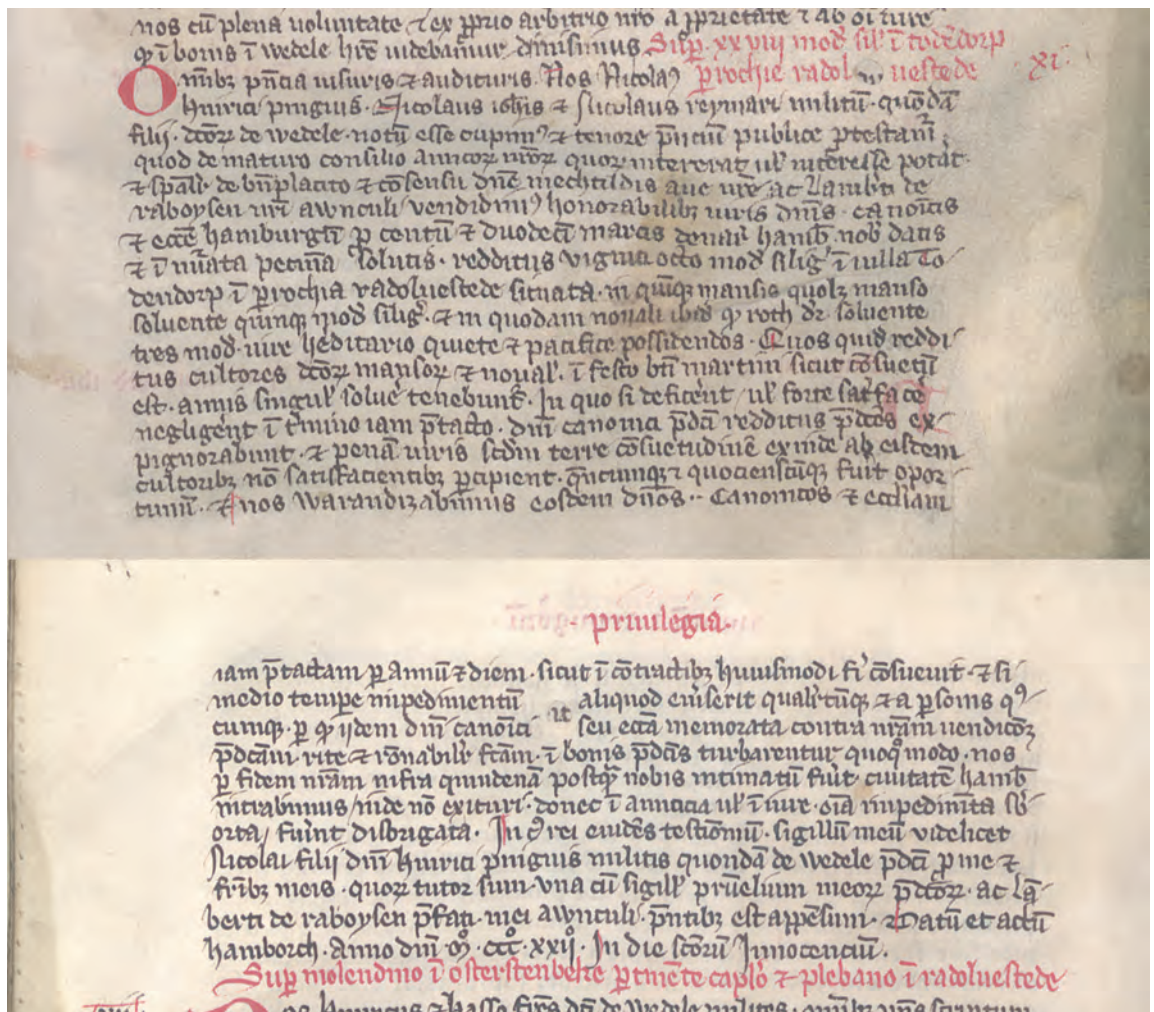 nos cū plena uoluntate ⁊ ex ꝓprio arbitrio nro a ꝓprietate ⁊ ab oī iure
ꝙ ī bonis ī wedele hr̄e uidebamur dimisimus Suꝑ. xx viij mod sil' ī todēdorp
Omībꝫ pn̄cia uisuris ⁊ audituris. Nos Nicolaꝰ ꝑrochie radol uestede xi.
hinrici pinguis. Nicolaus ioh̄is ⁊ Nicolaus reymari militū. quōdā
filij. dcōꝝ de wedele. notū esse cupimꝰ ⁊ tenore pn̄ciū publice ꝓtestam̄
quod de maturo consilio amicoꝝ nr̄oꝝ quoꝝ intererat ul' interesse potāt.
⁊ sp̄ali de bn̄placito ⁊ cōsensu dn̄e mechtildis aue nr̄e ac Lamb̄ti de
raboysen nr̄i awnculi vendidimꝰ honorabilibꝫ uiris dn̄is. canoīcis
⁊ ecc̄e hamburgn̄ ꝑ centū ⁊ duodecī marcis denar̄ hamb̄. nob̄ datis
⁊ ī nūata pecun̄a solutis. redditus viginti octo mod siliḡ ī uilla to
dendorp ī ꝑrochia radoluestede situata. in quīqꝫ mansis quolꝫ manso
soluente quinqꝫ mod siliḡ. ⁊ in quodam nouali ibid̄ ꝙ roth dr̄ soluente
tres mod. iure h̄editario quiete ⁊ pacifice possidendos. Quos quid̄ reddi
tus cultores dcōꝝ mansoꝝ ⁊ noual'. ī festo btī martini sicut cōsuetū
est. annis singul' solue tenebunt̄. In quo si deficēnt ul' forte satisfacē
negligent ī t̄mino iam p̄tacto. dn̄i canonici p̄dci redditus p̄dcōs ex
pignorabunt. ⁊ penā iuris scdm̄ terre cōsuetudinē exinde ab eisdem
cultoribꝫ nō satisfacientibꝫ ꝑcipient. qn̄cumqꝫ ⁊ quocienscūqꝫ fuit opor
tunū. Et nos warandizabimus eosdem dn̄os.. Canonicos ⁊ eccliam
privilegia.
iam p̄tactam ꝑ Annū ⁊ diem. sicut ī cōtractibꝫ huiusmodi fi' cōsueuit. ⁊ si
medio tempe impedimentū aliquod em̄serit qualit̄cūqꝫ ⁊ a ꝑsonis qꝰ
cumqꝫ. ꝑ ꝙ ijdem dn̄i canoīci seu ecc̄a memorata contra nr̄am uendicōꝫ
p̄dcām rite ⁊ rōnabilr̄ fcām. ī bonis p̄dcīs turbarentur quoqͦ modo. nos
ꝑ fidem nr̄am infra quindenā postqꝫ nobis intimatū fūit. ciuitatē hamb̄
intrabimus inde nō exituri. donec ī amicicia ul' ī iure. oīa impedim̄ta sb̄
orta fūint disbrigata. In ꝯ rei euidēs testiōniū. sigillū meū videlicet
Nicolai filij dn̄i hinrici pinguis militis quondā de wedele p̄dci ꝑ me ⁊
fr̄ibꝫ meis. quoꝝ tutor sum. vna cū sigill' pr̄uelium meoꝝ p̄dcōꝝ. ac Lā
berti de raboysen p̄fati. mei awnculi. pn̄tibꝫ est appēsum. Datū et actū
hamborch. Anno dn̄i Mͦ. cccͦ. xxijͦ. In die scōrū Innocenciū.
Suꝑ molendino ī osterstenbeke ꝑtinēte caplo ⁊ plebano ī radoluestede